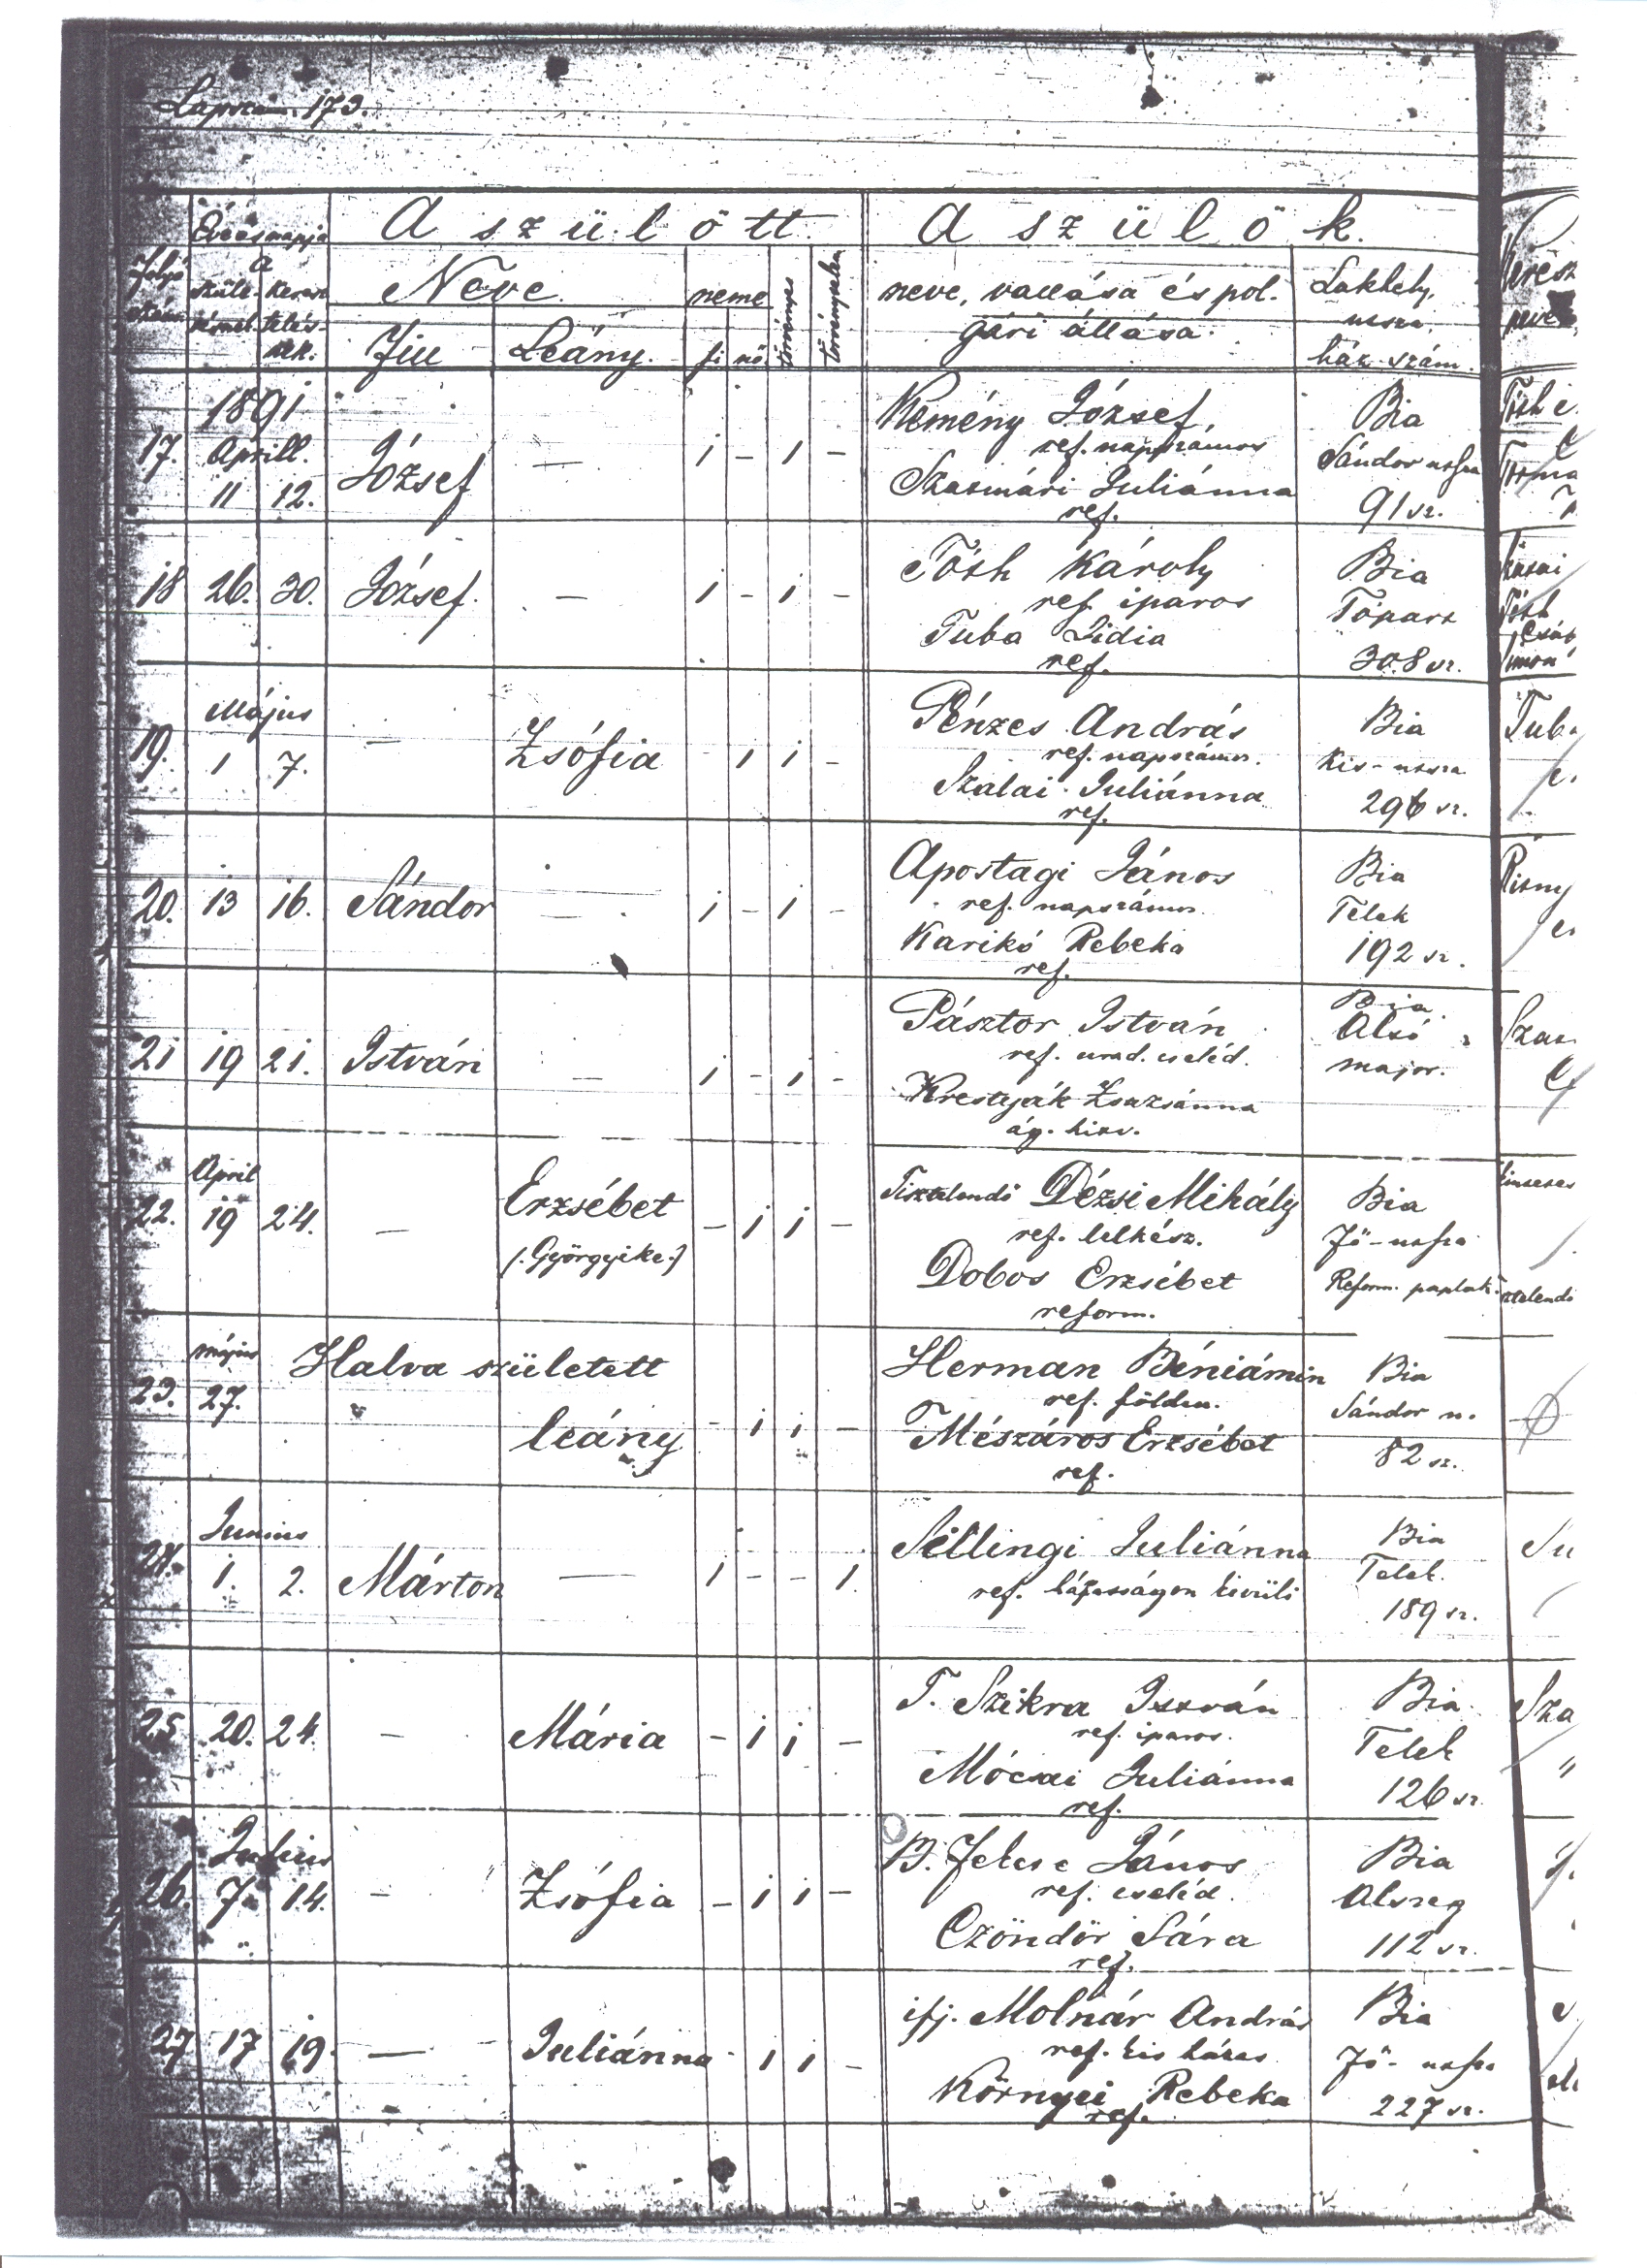 Lapszám 173.
A született
A szülők.
Év és napja
a
Folyó
szám
szüle-
tésnek
kereszt-
telés-
nek.
Neve.
Fiu
Leány.
neme
fi nő
törvényes
törvénytelen
neve, vallása és pol-
gári állása.
Lakhely,
utsza,
ház-szám.
Keresz
neve
1891
17. Aprill. 11 12. József — 1 - 1 -
Kemény József
ref. napszámos
Szasmári Juliánna
ref.
Bia
Sándor utsza
91 sz.
18 26. 30. József. — 1 - 1 -
Tóth Károly
ref. iparos
Tuba Lidia
ref.
Bia
Tópart
308 sz.
Május
19. 1 7. — Zsófia - 1 1 -
Pénzes András
ref. napszámos.
Szalai Juliánna
ref.
Bia
Kis-utsza
296 sz.
20. 13 16. Sándor — 1 - 1 -
Apostagi János
ref. napszámos.
Karikó Rebeka
ref.
Bia
Telek
192 sz.
21 19 21. István — 1 - 1 -
Pásztor István
ref. urad. cseléd.
Krestyják Zsuzsánna
ág. hitv.
Bia
Alsó
major.
April
22. 19 24. — Erzsébet - 1 1 -
(. Györgyike .)
Tisztelendő Dézsi Mihály
ref. lelkész.
Dobos Erzsébet
reform.
Bia
Fő-utsza
Reform. paplak
május
23. 27. Halva született
leány - 1 1 -
Herman Béniámin
ref. földm.
Mészáros Erzsébet
ref.
Bia
Sándor u.
82 sz.
Junius
24. 1. 2. Márton — 1 - - 1.
Sillingi Juliánna
ref. házasságon kivüli
Bia
Telek.
189 sz.
25 20. 24. — Mária - 1 1 -
T. Szikra István
ref. iparos.
Mócsai Juliánna
ref.
Bia
Telek
126 sz.
Julius
26. 7. 14. - Zsófia - 1 1 -
B. Fekete János
ref. cseléd.
Czöndör Sára
ref.
Bia
Alszeg
112 sz.
27 17 19. — Juliánna - 1 1 -
ifj. Molnár András
ref. kis házas
Környei Rebeka
ref.
Bia
Fő-utsza
227 sz.